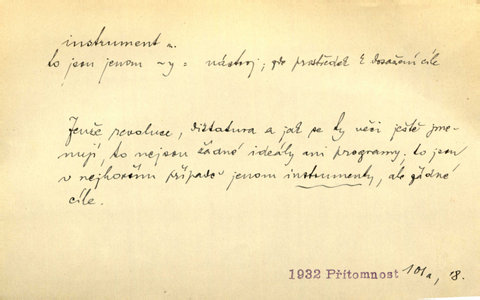 instrument m.
to jsou jenom ~y = nástroj; prostředek k dosažení cíle
Jenže revoluce, diktatura a jak se ty věci ještě jme-
nují, to nejsou žádné ideály ani programy, to jsou
v nejhorším případě jenom instrumenty, ale žádné
cíle.
1932 Přítomnost 101a, 18.